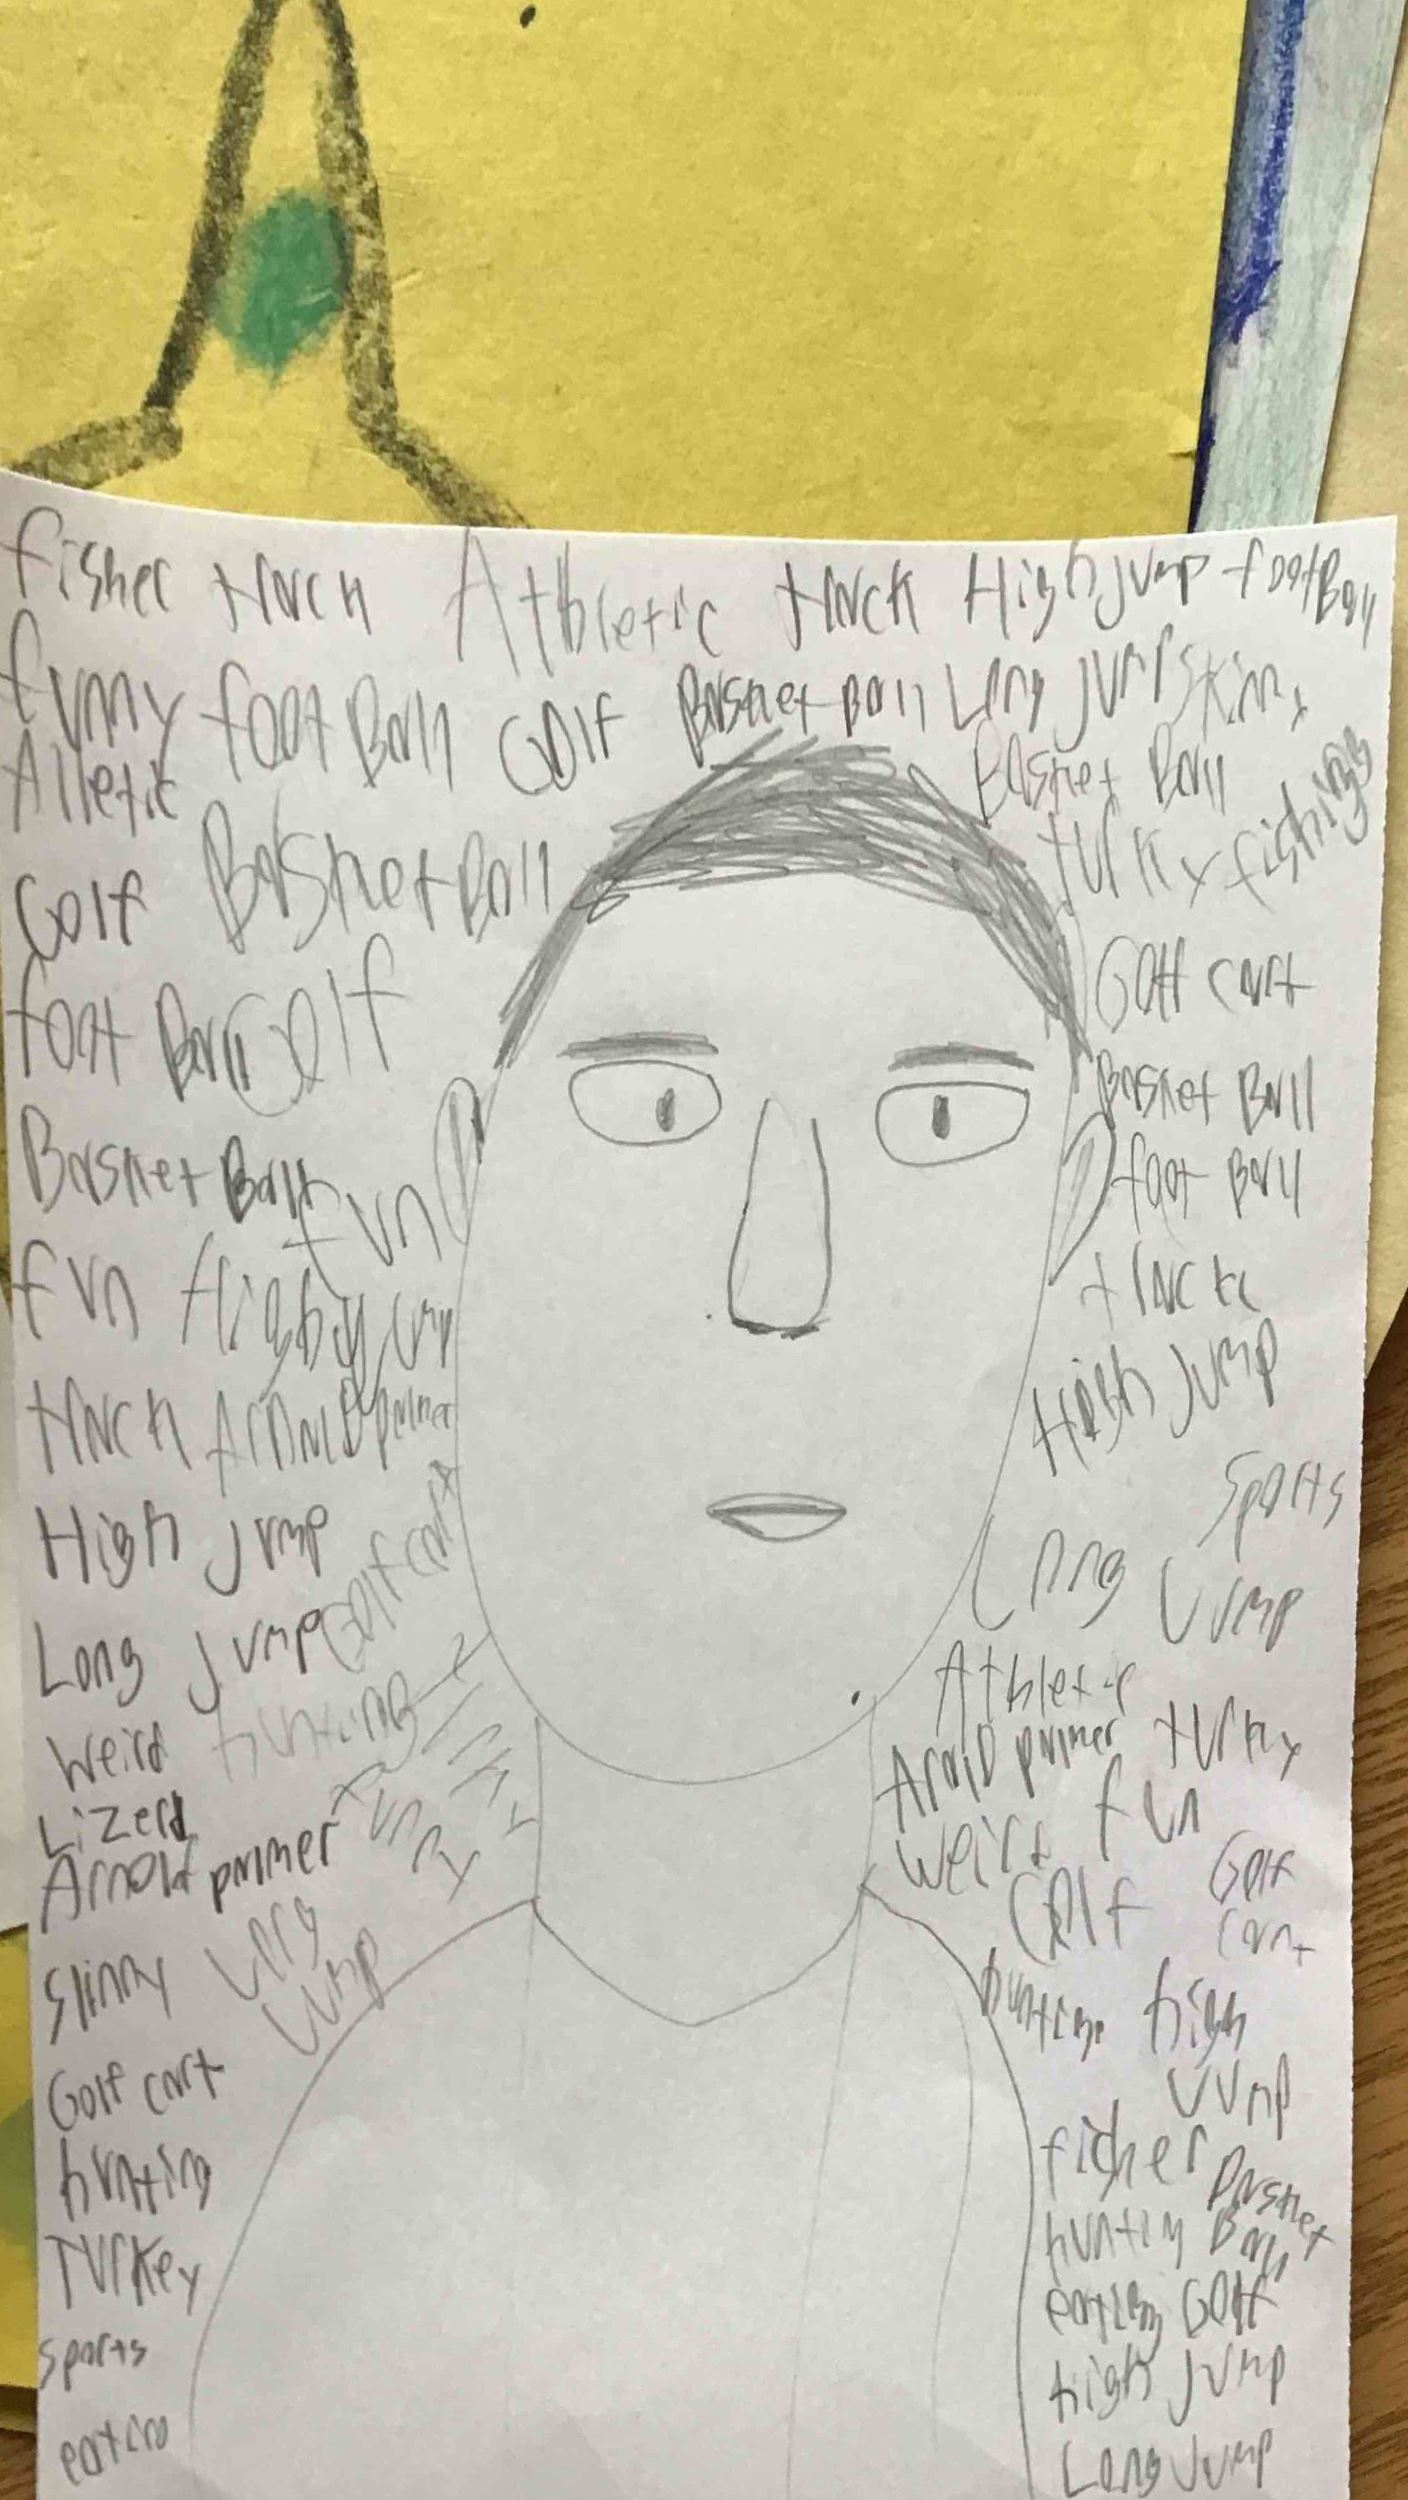 Fisher track Athletic track High jump footBall
funny footBall Golf BasketBall Long jump skinny
Alletic Basket Ball
Golf BasketBall turky fishing
foot Ball Golf Golf cart
Basket Ball fun Basket Ball
foot Ball
fun High jump track
track ArnolD palmer High jump
High jump Golf cart Sports
Long jump Long jump
Weird hunting Athletic
Lizerd ArnolD palmer turky
Arnold palmer Weird fun
Slinny Long jump Golf Golf cart
Golf cart hunting high jump
hunting fisher Basket Ball
Turkey hunting
Sports eating Golf
eating high jump
Long Jump